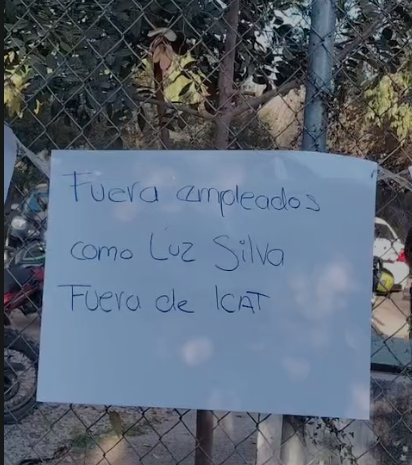 Fuera empleados
como Luz Silva
Fuera de ICAT